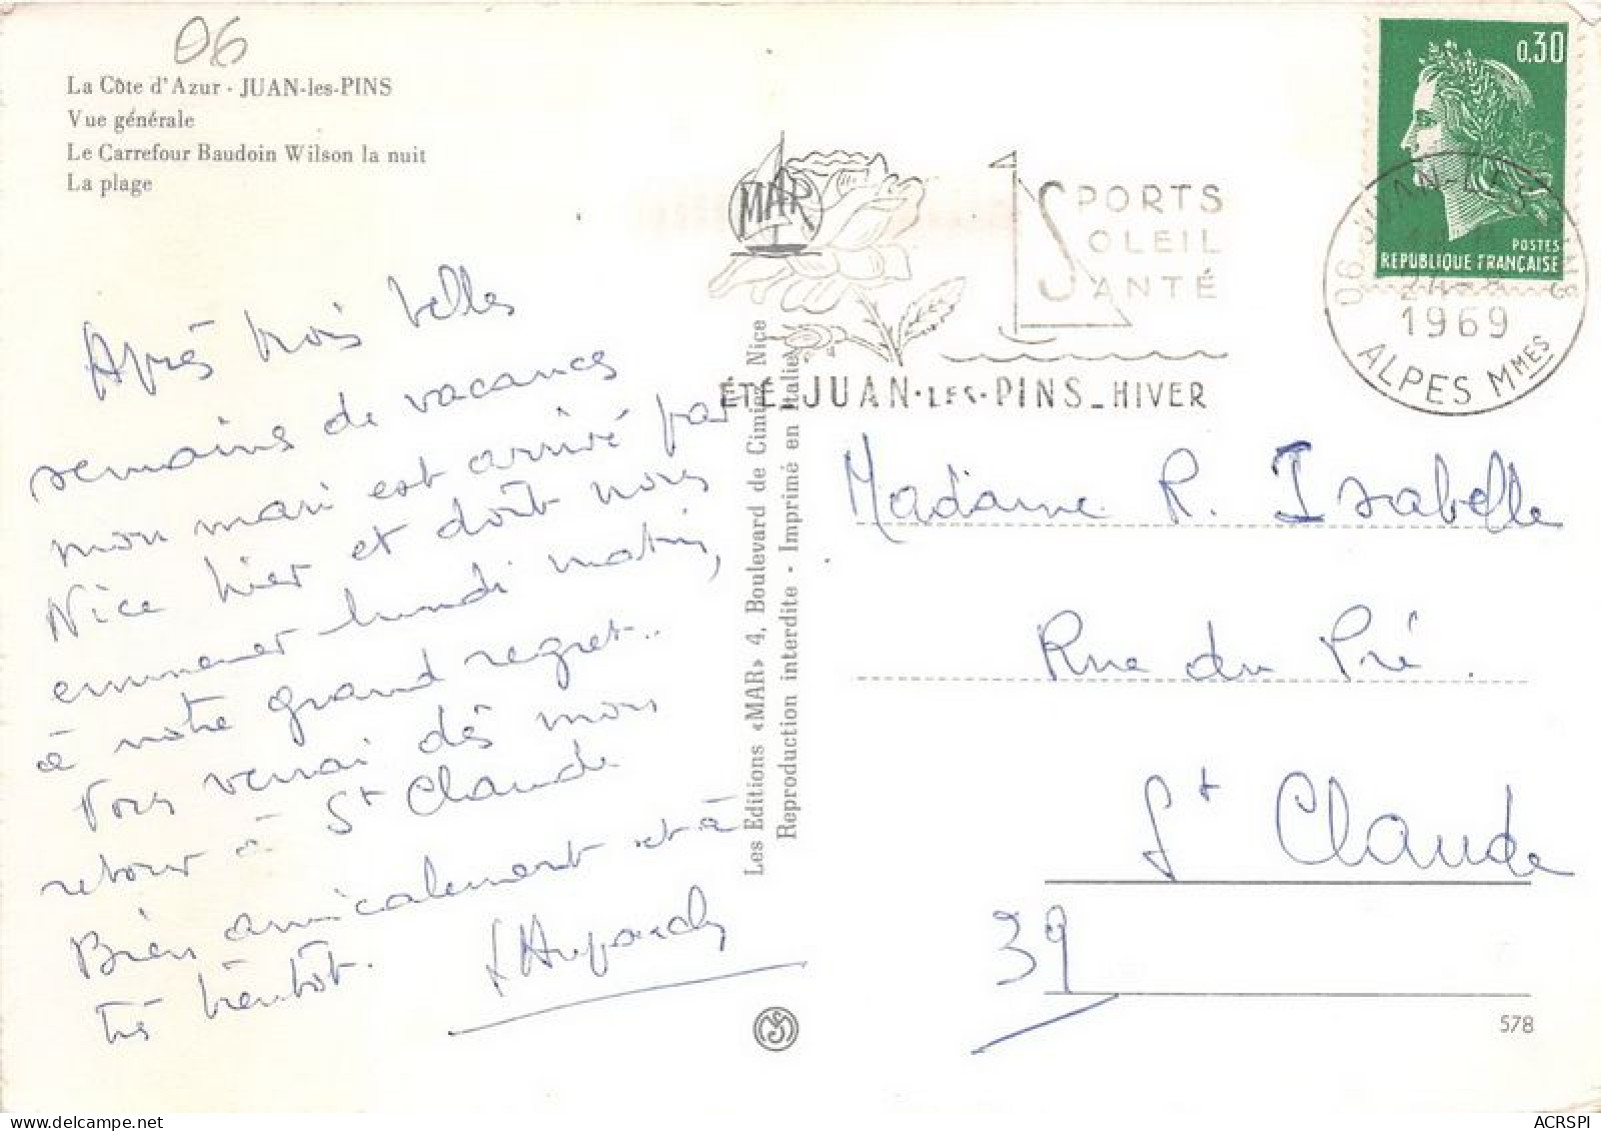 06
La Côte d'Azur - JUAN-les-PINS
Vue générale
Le Carrefour Baudoin Wilson la nuit
La plage
Après trois belles
semaines de vacances
mon mari est arrivé par
Nice hier et doit nous
emmener lundi matin,
à notre grand regret..
Vous verrai dès mon
retour à St Claude
Bien amicalement et à
très bientôt.
Les Editions «MAR» 4, Boulevard de Cimiez Nice
Reproduction interdite - Imprimé en Italie
MAR
SPORTS
SOLEIL
SANTÉ
ÉTÉ - JUAN-LES-PINS - HIVER
0,30
POSTES
REPUBLIQUE FRANÇAISE
06 JUAN LES PINS
1969
ALPES MMES
Madame R. Isabelle
Rue du Pré.
St Claude
39
578
ACRSPI